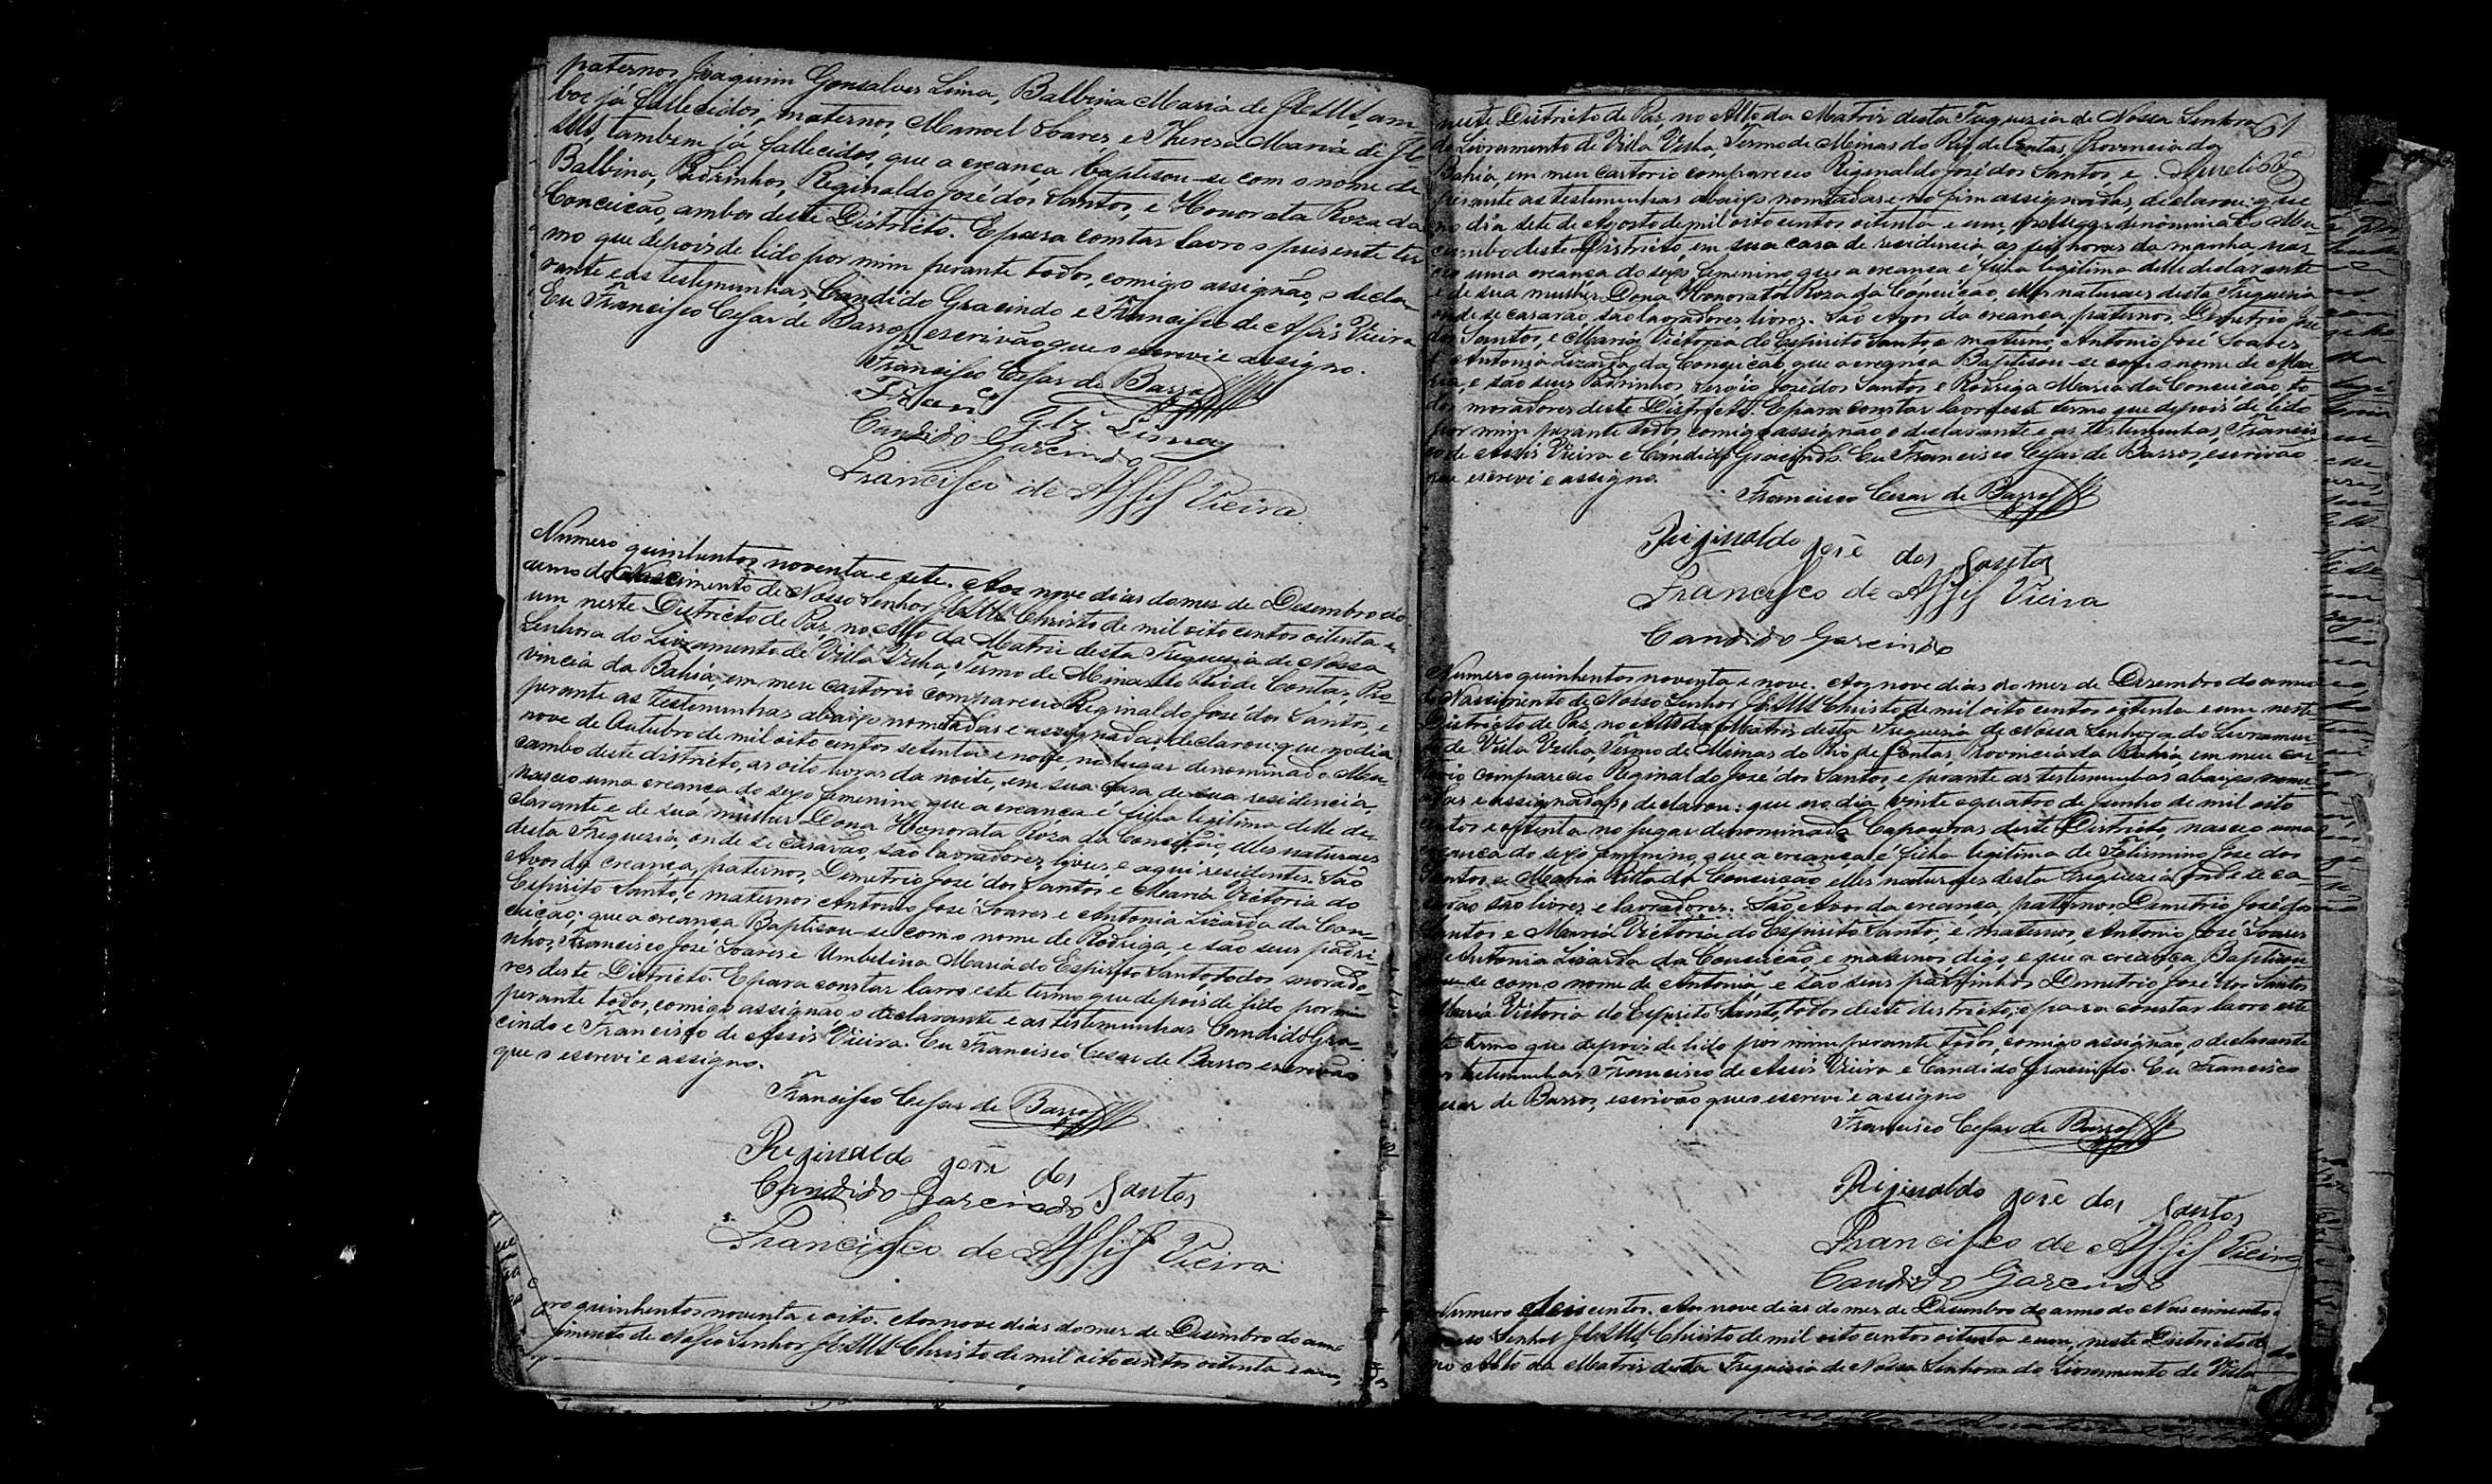 paternos Joaquim Gonsalves Lima, Balbina Maria de JESUS, am-
bos já fallecidos, maternos, Manoel Soares, e Thereza Maria de JE-
SUS, tambem já fallecidos, que a creança baptisou-se com o nome de
Balbina, Padrinhos, Reginaldo José dos Santos, e Honorata Roza da
Conceição, ambos deste Districto. E para constar lavro o presente ter
mo que depois de lido por mim perante todos, comigo assignão, o decla
rante e as testemunhas, Candido Gracindo e Francisco de Assis Vieira
Eu Francisco Cesar de Barros, escrivão que o escrevi e assigno.
Francisco Cesar de Barros
Franco Glz Lima
Candido Garcindo
Francisco de Assis Vieira
Numero quinhentos noventa e sete. Aos nove dias do mes de Desembro do
anno do Nascimento de Nosso Senhor JESUS Christo de mil oito centos oitenta e
um neste Districto de Paz, no Alto da Matriz desta Freguezia de Nossa
Senhora do Livramento de Villa Velha, Termo de Minas do Rio de Contas, Pro-
vincia da Bahia, em meu cartorio compareceu Reginaldo José dos Santos, e
perante as testemunhas abaixo nomeadas e assignadas, declarou: que no dia
nove de Outubro de mil oito centos setenta e nove, no lugar denominado Mu-
cambo deste districto, as oito horas da noite, em sua casa de sua residencia,
nasceu uma creança do sexo femenino que a creança é filha legitima delle de-
clarante e de sua mulher Dona Honorata Roza da Conceição, elles naturaes
desta Freguezia, onde se casarão, são lavradores, livres, e aqui residentes. São
Avos da creança, paternos, Demetrio José dos Santos e Maria Victoria do
Espirito Santo, e maternos Antonio José Soares e Antonia Lizarda da Con-
ceição; que a creança Baptisou-se com o nome de Rodriga, e são seus padri-
nhos, Francisco José Soares e Umbelina Maria do Espirito Santo, todos morado-
res deste Districto. E para constar lavro este termo que depois de lido por mim
perante todos, comigo assignão, o declarante e as testemunhas Candido Gra-
cindo e Francisco de Assis Vieira. Eu Francisco Cesar de Barros escrivão
que o escrevi e assigno.
Francisco Cesar de Barros
Reginaldo José dos Santos
Candido Garcindo
Francisco de Assis Vieira
mro quinhentos noventa e oito. Aos nove dias do mes de Desembro do anno
cimento de Nosso Senhor JESUS Christo de mil oito centos oitenta e um,
neste Districto de Paz, no Alto da Matriz desta Freguezia de Nossa Senhora 61
do Livramento de Villa Velha, Termo de Minas do Rio de Contas, Provincia da
Bahia, em meu cartorio compareceu Reginaldo José dos Santos, e
perante as testemunhas abaixo nomeadas e no fim assignadas, declarou: que
no dia sete de Agosto de mil oito centos oitenta e um denominado Mu-
cambo deste Districto, em sua casa de residencia, as seis horas da manha, nas-
ceu uma creança do sexo femenino, que a creança é filha legitima delle declarante
e de sua mulher Dona Honorata Roza da Conceição, elles naturaes desta Freguezia
onde se casarão, são lavradores, livres. São Avos da creança, paternos, Demetrio José
dos Santos, e Maria Victoria do Espirito Santo, e materno, Antonio José Soares
e Antonia Lizarda da Conceição, que a creança Baptisou-se com o nome de Ma-
ria, e são seus Padrinhos Sergio José dos Santos e Rodriga Maria da Conceição, to-
dos moradores deste Districto. E para constar lavro este termo que depois de lido
por mim perante todos, comigo assignão o declarante e as testemunhas, Francis
co de Assis Vieira e Candido Gracindo. Eu Francisco Cesar de Barros, escrivão
que escrevi e assigno.
Francisco Cesar de Barros
Reginaldo José dos Santos
Francisco de Assis Vieira
Candido Garcindo
Numero quinhentos noventa e nove. Aos nove dias do mes de Desembro do anno
do Nascimento de Nosso Senhor JESUS Christo de mil oito centos oitenta e um neste
Districto de Paz, no Alto da Matriz desta Freguezia de Nossa Senhora do Livramen
to de Villa Velha, Termo de Minas do Rio de Contas, Provincia da Bahia, em meu car
torio compareceu Reginaldo José dos Santos, e perante as testemunhas abaixo nome
adas e assignadas, declarou: que no dia vinte e quatro de Junho de mil oito
centos e oitenta no lugar denominado Capoeiras deste Districto, nasceu uma
creança do sexo femenino, que a creança é filha legitima de Felismino José dos
Santos e Maria Ritta da Conceição, elles naturaes desta Freguezia onde se ca-
sarão são livres e lavradores. São Avos da creança, paternos, Demetrio José dos
Santos e Maria Victoria do Espirito Santo, e maternos, Antonio José Soares
e Antonia Lizarda da Conceição, e maternos digo, e que a creança Baptisou-
se com o nome de Antonia, e são seus padrinhos Demetrio José dos Santos
Maria Victoria do Espirito Santo, todos deste districto, e para constar lavro este
te termo que depois de lido por mim perante todos, comigo assignão, o declarante
as testemunhas Francisco de Assis Vieira e Candido Gracindo. Eu Francisco
Cesar de Barros, escrivão que o escrevi e assigno
Francisco Cesar de Barros
Reginaldo José dos Santos
Francisco de Assis Vieira
Candido Garcindo
Numero Seis centos. Aos nove dias do mes de Desembro do anno do Nascimento
Nosso Senhor JESUS Christo de mil oito centos oitenta e um, neste Districto de
no Alto da Matriz desta Freguezia de Nossa Senhora do Livramento de Villa